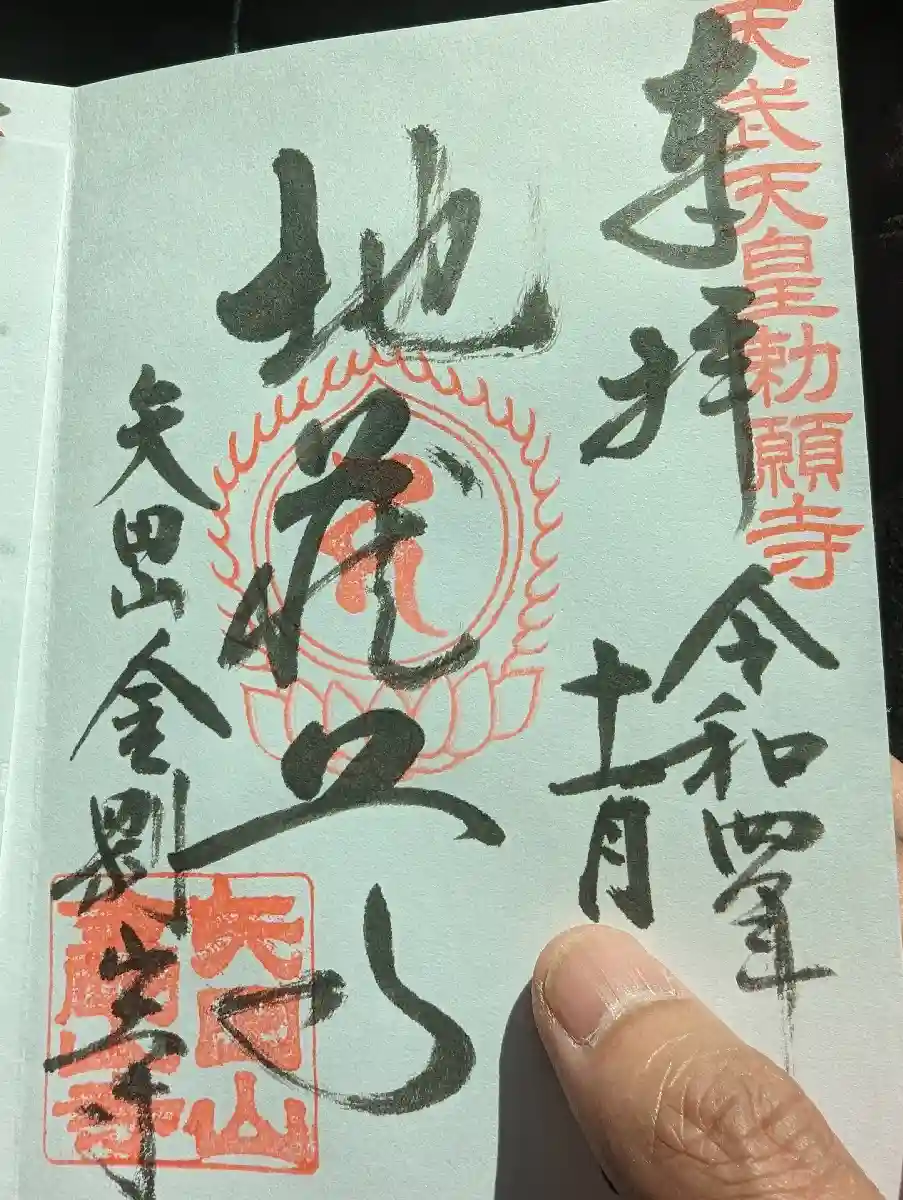 天武天皇勅願寺
奉拝
令和四年
十一月
地蔵
矢田山金剛山寺
矢田山
金剛山寺